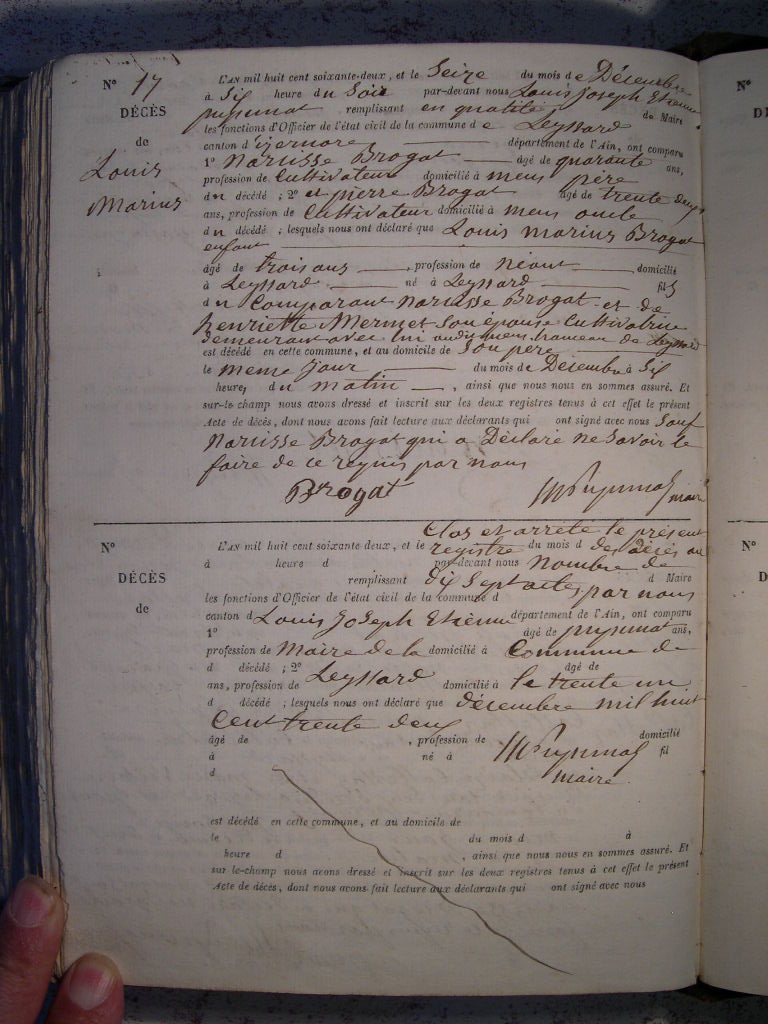 N° 17
DÉCÈS
de
Louis
Marius
L'AN mil huit cent soixante-deux, et le Seize du mois de Décembre
à Six heure du Soir par-devant nous Louis Joseph Etienne
puysunat remplissant en qualité de Maire
les fonctions d'Officier de l'état civil de la commune de Leyssard
canton d'izernore département de l'Ain, ont comparu
1° Narcisse Brogat âgé de quarante ans,
profession de Cultivateur domicilié à mens père
du décédé ; 2° et pierre Brogat âgé de trente deux
ans, profession de Cultivateur domicilié à mens oncle
du décédé ; lesquels nous ont déclaré que Louis Marius Brogat
enfant
âgé de trois ans , profession de Néant domicilié
à Leyssard né à Leyssard fils
du Comparant Narcisse Brogat et de
henriette Mermet Son épouse Cultivatrice
demeurant avec lui audit mens hameau de Leyssard
est décédé en cette commune, et au domicile de Son père
le meme jour du mois de Décembre à Six
heure, du matin , ainsi que nous nous en sommes assuré. Et
sur-le champ nous avons dressé et inscrit sur les deux registres tenus à cet effet le présent
Acte de décès, dont nous avons fait lecture aux déclarants qui ont signé avec nous Sauf
Narcisse Brogat qui a Déclaré ne Savoir le
faire de ce requis par nous
Brogat maire
N°
DÉCÈS
de
Clos et arrêté le présent
L'AN mil huit cent soixante-deux, et le registre du mois d des décès au
à heure d par-devant nous Nombre de
remplissant dix Sept actes par nous d Maire
les fonctions d'Officier de l'état civil de la commune d
canton d Louis Joseph Etienne département de l'Ain, ont comparu
1° âgé de puysunat ans,
profession de Maire de la domicilié à Commune de
d décédé ; 2° âgé de
ans, profession de Leyssard domicilié à le trente un
d décédé ; lesquels nous ont déclaré que décembre mil huit
Cent trente deux
âgé de , profession de domicilié
à né à fil
d maire
est décédé en cette commune, et au domicile de
le du mois d à
heure d , ainsi que nous nous en sommes assuré. Et
sur le-champ nous avons dressé et inscrit sur les deux registres tenus à cet effet le présent
Acte de décès, dont nous avons fait lecture aux déclarants qui ont signé avec nous
N°
N°